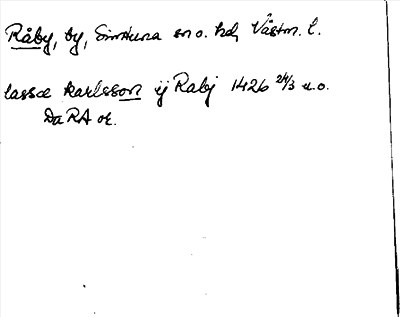 Råby, by, Simtuna sn o. hd, Västm. l.
lasse karlsson ij Rabj 1426 24/3 u.o.
DaRA or.